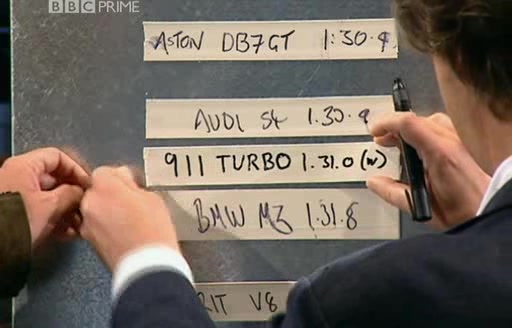 BBC PRIME
ASTON DB7GT 1:30.9
AUDI S4 1.30.9
911 TURBO 1.31.0 (W)
BMW M3 1.31.8
RIT V8